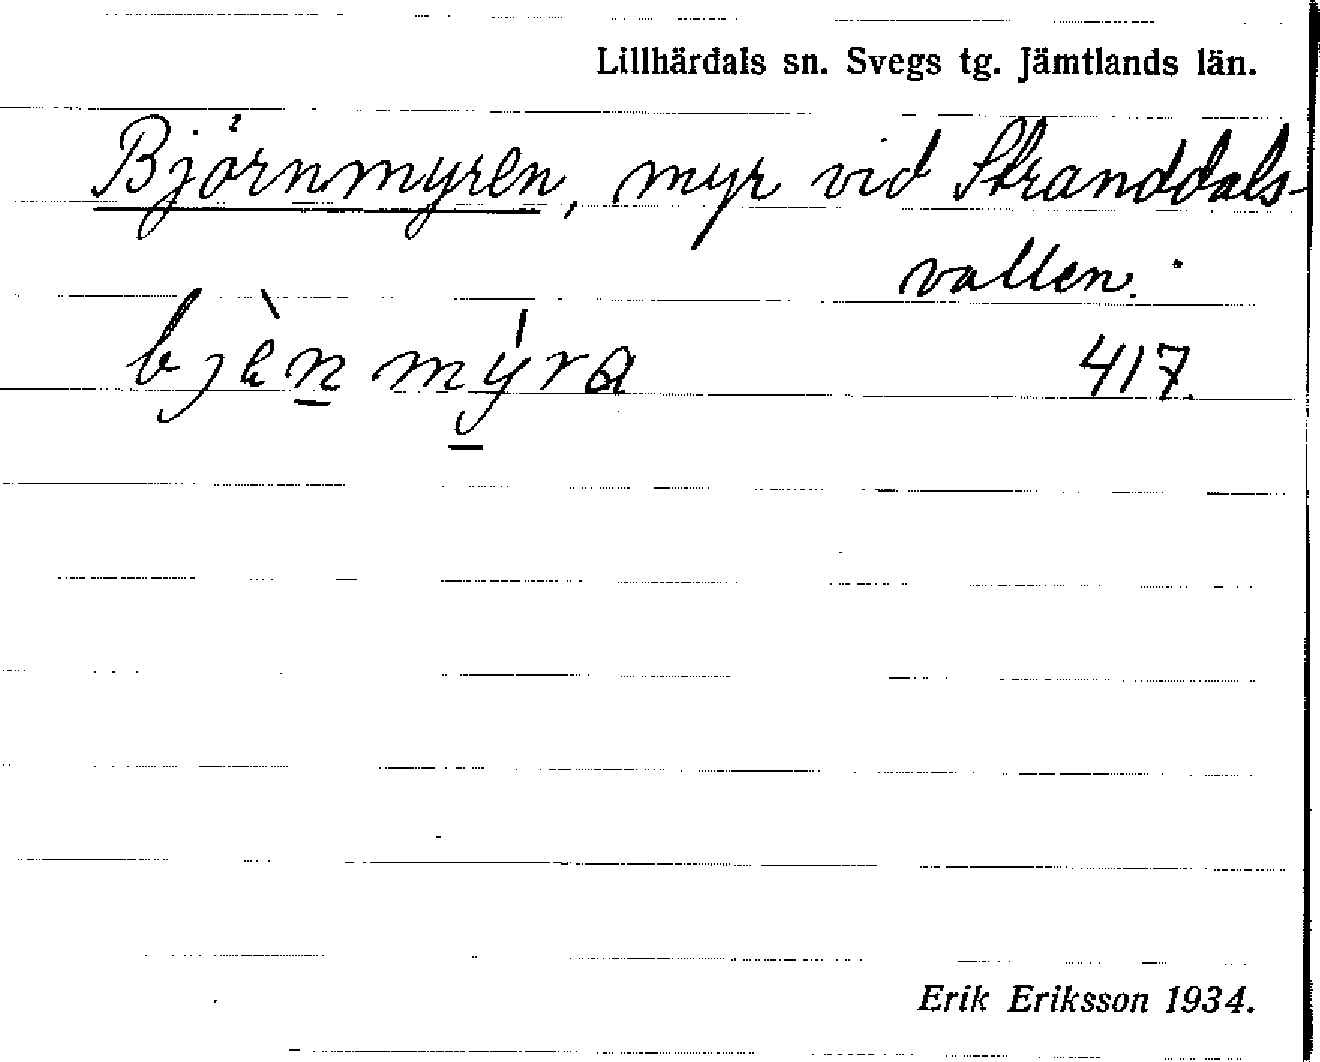 Lillhärdals sn. Svegs tg. Jämtlands län.
Björnmyren, myr vid Stranddals-
vallen.
bjèn mýra
417.
Erik Eriksson 1934.